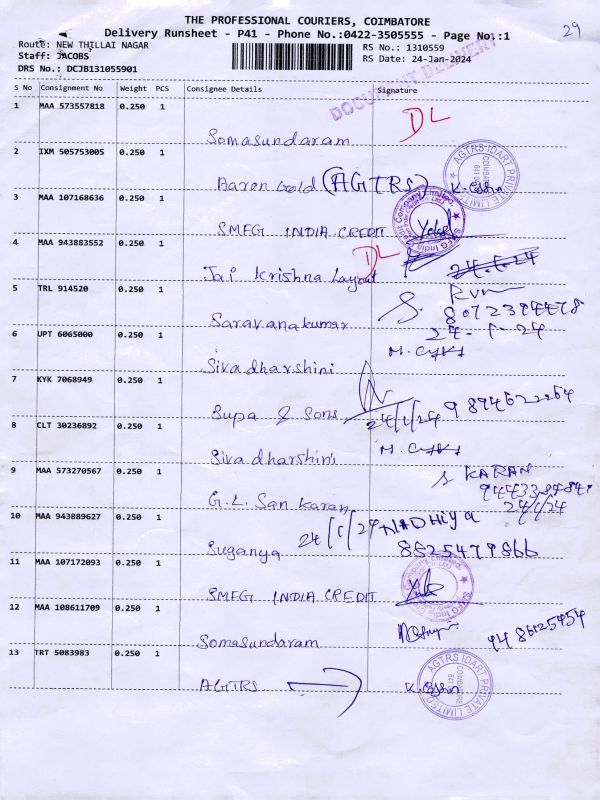 THE PROFESSIONAL COURIERS, COIMBATORE
29
Delivery Runsheet - P41 - Phone No.:0422-3505555 - Page No.:1
Route: NEW THILLAI NAGAR RS No.: 1310559
Staff: JACOBS RS Date: 24-Jan-2024
DRS No.: DCJB131055901
DOCUMENT DELIVERY
S No Consignment No Weight PCS Consignee Details Signature
1 MAA 573557818 0.250 1 Somasundaram DL
2 IXM 505753005 0.250 1 Aaren Gold (AGTRS)
AGTRS IDART PRIVATE LIMITED COIMBATORE
3 MAA 107168636 0.250 1 SMFG INDIA CREDIT
4 MAA 943883552 0.250 1 Jai Krishna Layout DL
5 TRL 914520 0.250 1 Saravanakumar
6 UPT 6065000 0.250 1 Sivadharshini
7 KYK 7068949 0.250 1 Supa & Sons 24/1/24
8 CLT 30236892 0.250 1 Sivadharshini
9 MAA 573270567 0.250 1 G.L. Sankaran S KARAN
24/1/24
10 MAA 943889627 0.250 1 Suganya 24/1/24 NADHiya
8825479866
11 MAA 107172093 0.250 1 SMFG INDIA CREDIT
12 MAA 108611709 0.250 1 Somasundaram
13 TRT 5083983 0.250 1 AGTRS
AGTRS IDART PRIVATE LIMITED